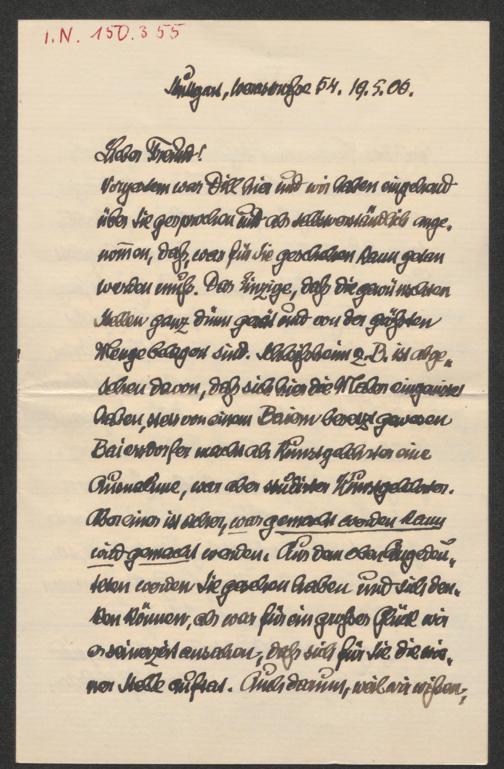 I.N. 150.355
Stuttgart, 54. 19.5.06.
Lieber Freund!
Vorgestern war Dill hier und wir haben eingehend
über Sie gesprochen und als selbstverständlich ange-
nom̅en, daß, was für Sie geschehen kann getan
werden muß. Das Einzige, daß die gewünschten
Stellen ganz dünn gesät und von der größten
Menge belagert sind. Schleißheim z. B. ist abge-
sehen davon, daß sich hier die Maler eingenistet
haben, stets von einem Baiern besetzt gewesen
Baiersdorfer machte als Kunstgelehrter eine
Ausnahme, war aber Kunstgelehrter.
Aber eines ist sicher, was gemacht werden kann
wird gemacht werden. Aus dem oben Angedeu-
teten werden Sie gesehen haben und sich den-
ken können, als was für ein großes Glück wir
es seinerzeit ansahen, daß sich für Sie die
Stelle auftat. Auch darum, weil wir wissen,